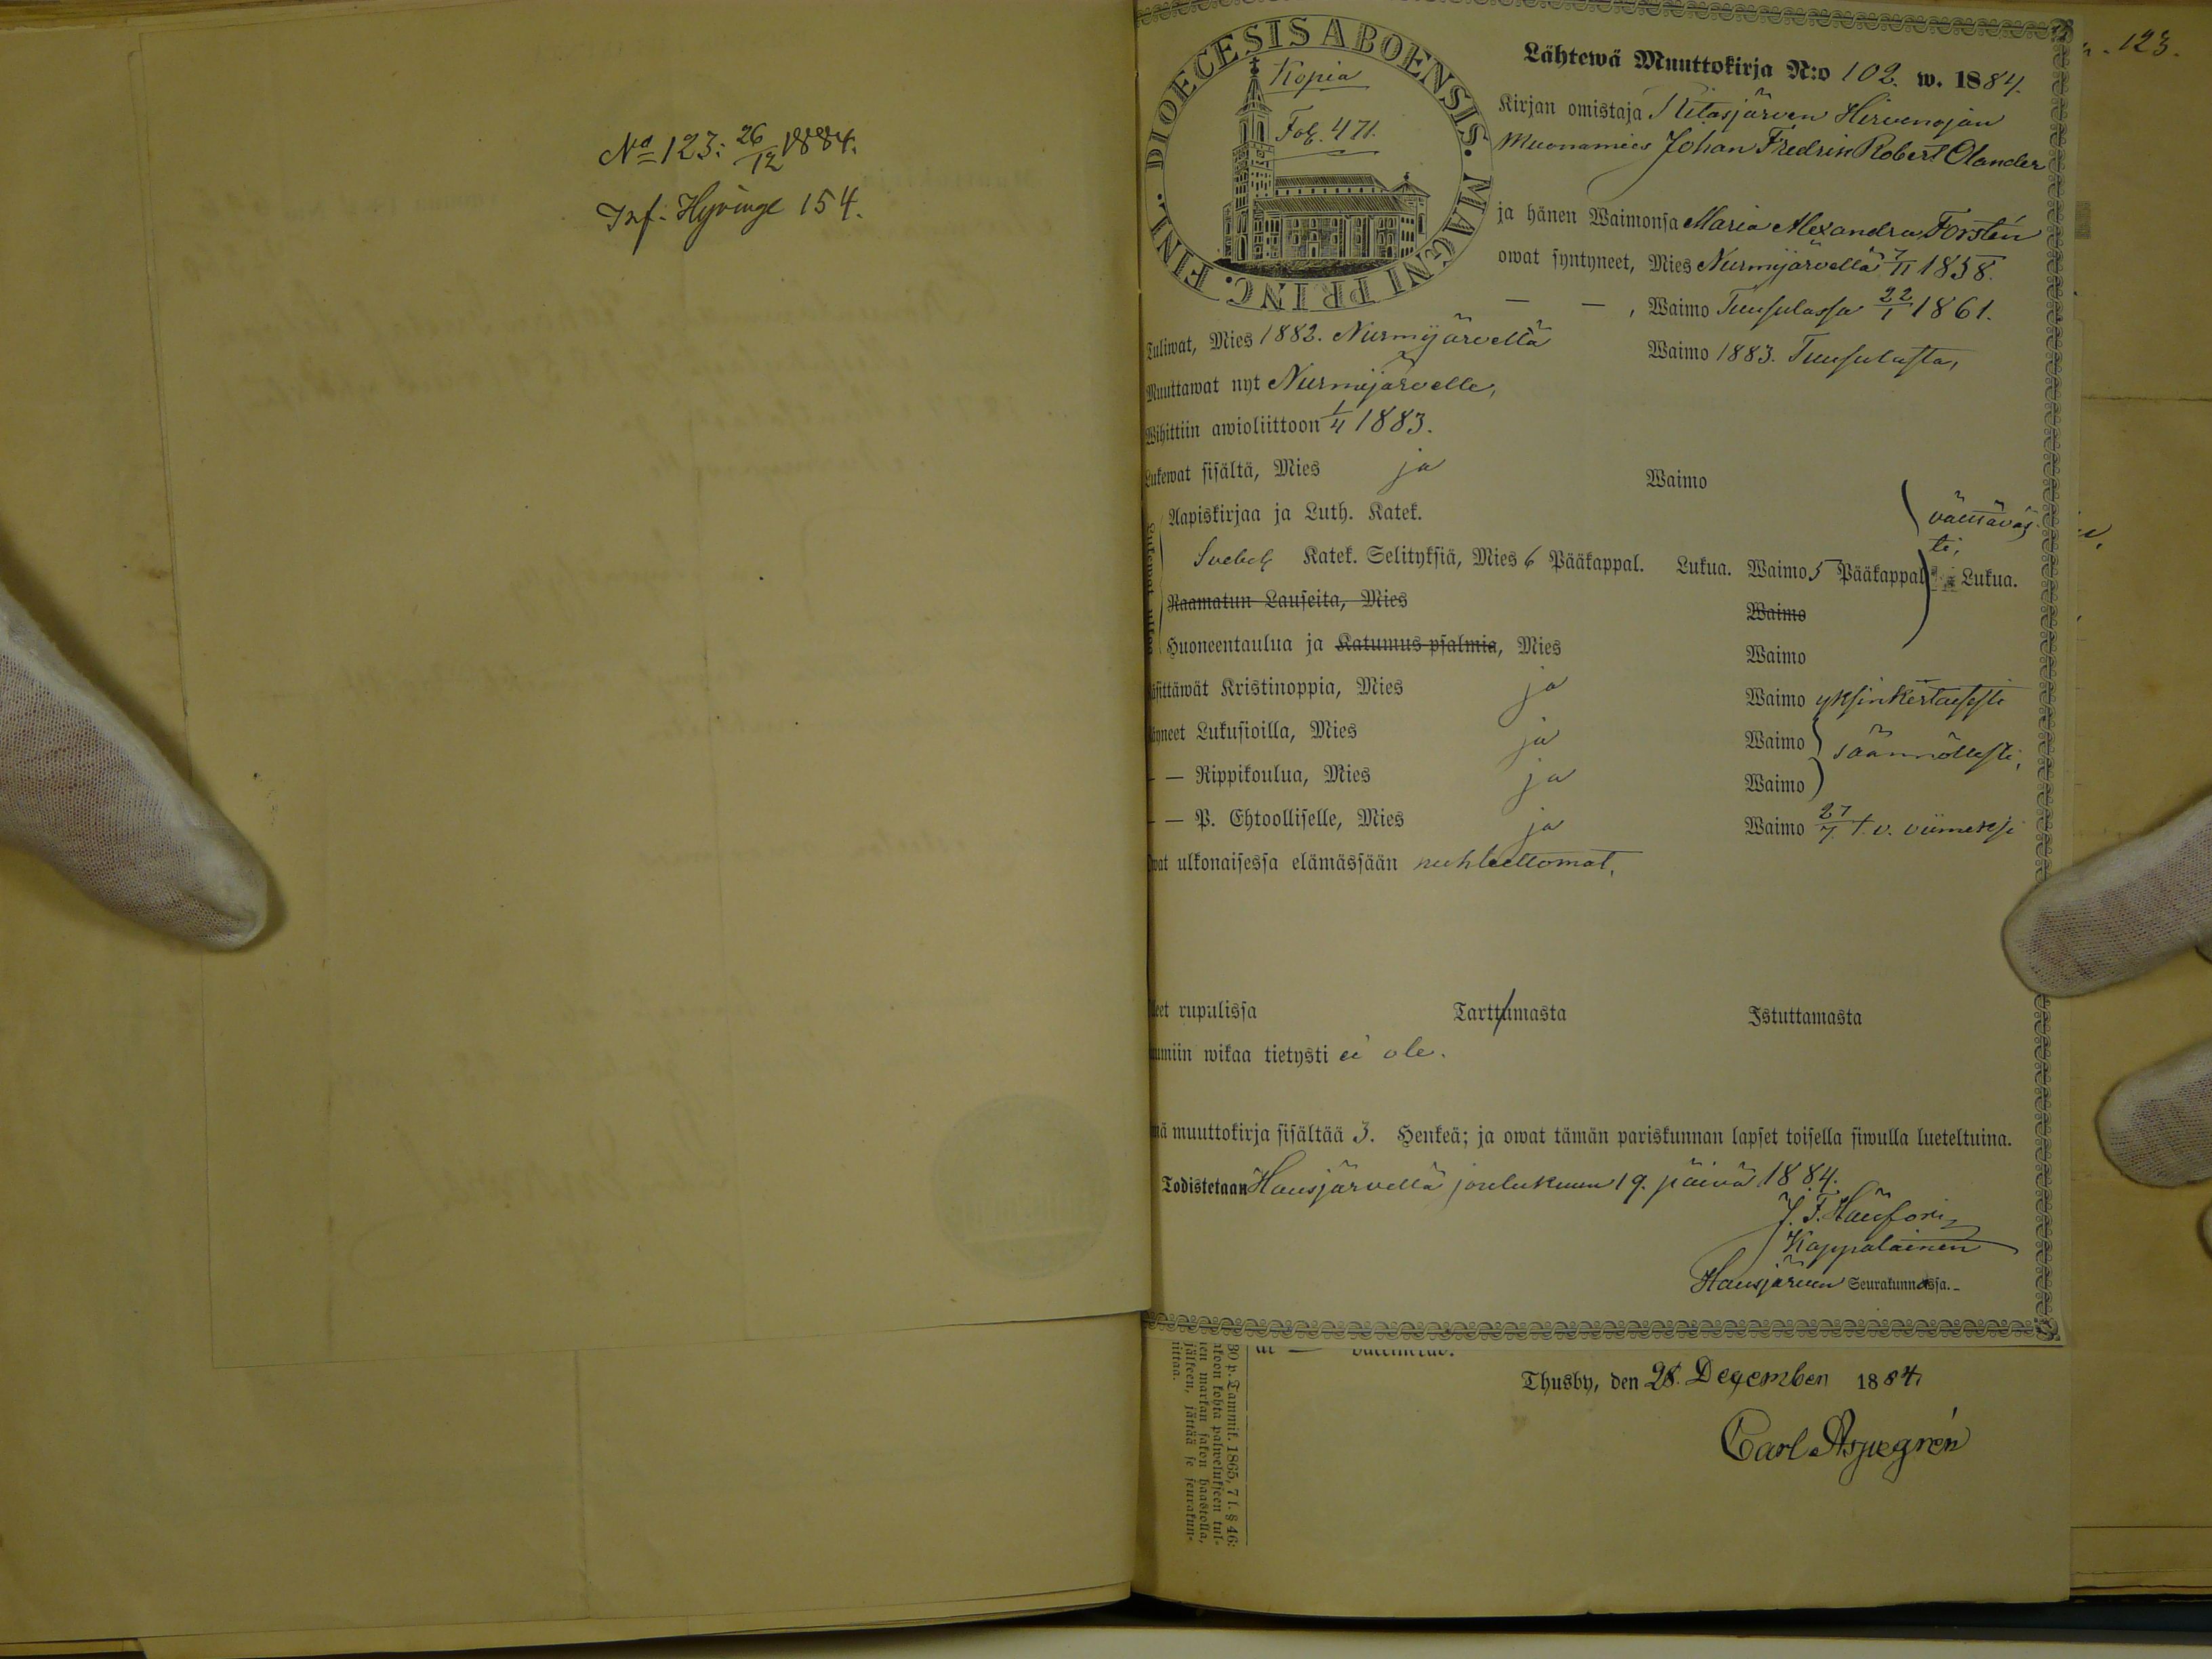 No 123: 26/12 1884.
Inf. Hyvinge 154.
DIOECESIS ABOENSIS. MAGNI PRINC. FINL.
Kopia
Fol. 471.
Lähtewä Muuttokirja N:o 102. w. 1884.
Kirjan omistaja Ritasjärven Hirvenojan
Muonamies Johan Fredrik Robert Olander
ja hänen Waimonsa Maria Alexandra Forstén
owat syntyneet, Mies Nurmijärvellä 7/11 1858.
— — , Waimo Tuusulassa 22/1 1861.
Tuliwat, Mies 1882. Nurmijärveltä Waimo 1883. Tuusulasta,
Muuttawat nyt Nurmijärvelle,
Wihittiin awioliittoon 1/4 1883.
Lukewat sisältä, Mies ja Waimo
Lukewat ulkoa
Aapiskirjaa ja Luth. Katek. välttäväs-
ti,
Svebel. Katek. Selityksiä, Mies 6 Pääkappal. Lukua. Waimo 5 Pääkappal. Lukua.
Raamatun Lauseita, Mies Waimo
Huoneentaulua ja Katumus-psalmia, Mies Waimo
äsittäwät Kristinoppia, Mies ja Waimo yksinkertaisesti
äyneet Lukusioilla, Mies ja Waimo säännöllisesti,
— — Rippikoulua, Mies ja Waimo
— — P. Ehtoolliselle, Mies ja Waimo 27/7 t. v. viimeksi
Owat ulkonaisessa elämässään nuhteettomat,
leet rupulissa Tarttumasta Istuttamasta
umiin wikaa tietysti ei ole.
mä muuttokirja sisältää 3. Henkeä; ja owat tämän pariskunnan lapset toisella siwulla lueteltuina.
Todistetaan Hausjärvellä joulukuun 19. päivä 1884.
Kappalainen
Hausjärven Seurakunnassa.
Thusby, den 28. December 1884,
Carl Aspegrén
30 p. Tammik. 1865, 7 l. § 46:
ukoon kohta palwelukseen tul-
en markan sakon haastolla,
jälkeen, jättää se seurakun-
iittaa.
n. 123.